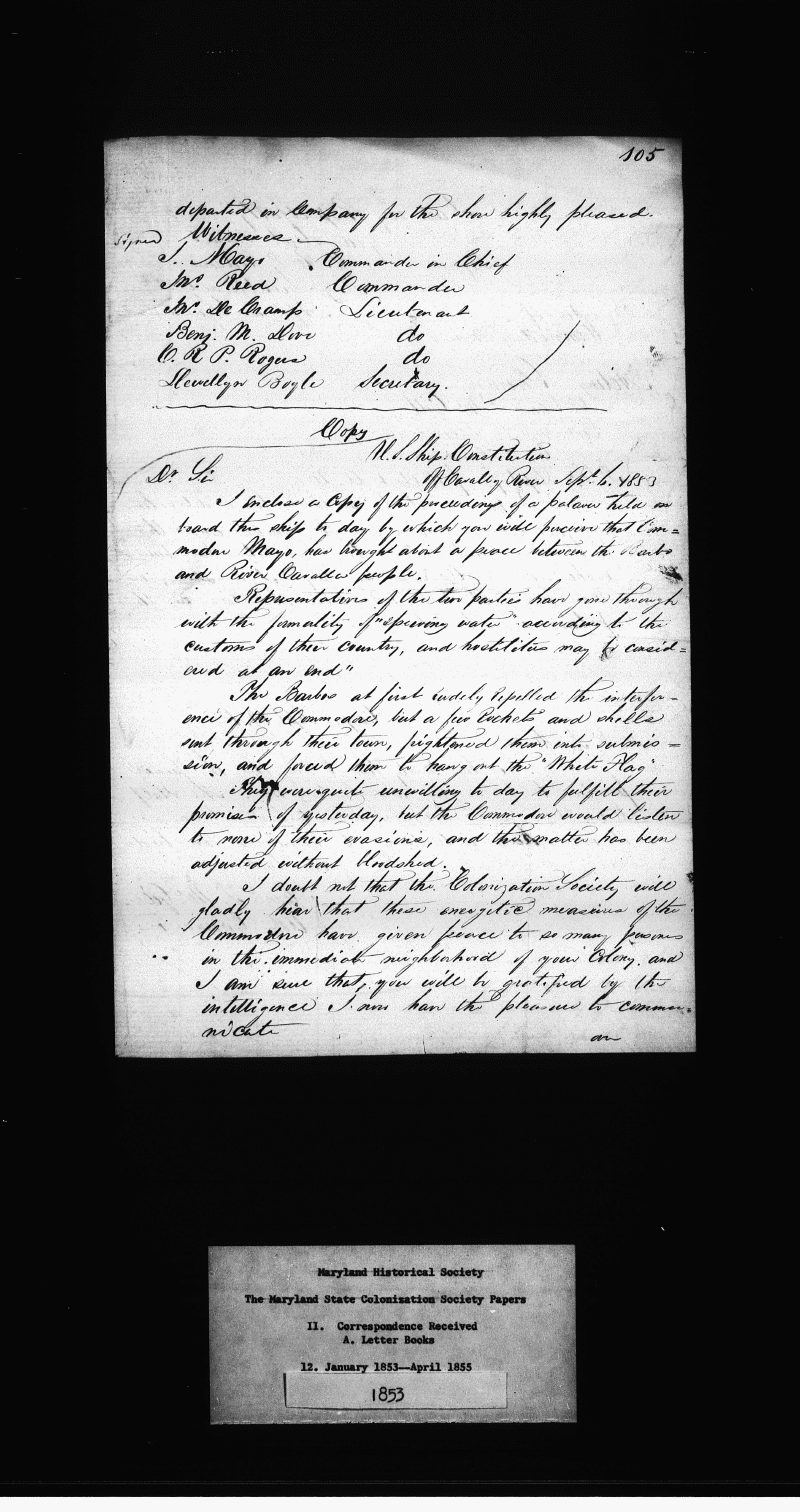 105
departed in Company for the shore highly pleased.
Signed Witnesses
I. Mayo Commander in Chief
Jno. Reed Commander
Jno. De Camp Lieutenant
Benj. M. Dove do
C. R. P. Rogers do
Llewellyn Boyle Secretary.
Copy
U. S. Ship Constitution
Off Cavally River Sept. 6. 1853
Dr Sir
I enclose a Copy of the proceedings of a palaver held on
board this ship to day by which you will perceive that Com=
modore Mayo, has brought about a peace between the Barbo
and River Cavalla people.
Representatives of the two parties have gone through
with the formality of "spewing water" according to the
customs of their country, and hostilities may be consid=
ered at an end"
The Barbos at first rudely repelled the interfer-
ence of the Commodore, but a few rockets and shells
sent through their town, frightened them into submis=
sion, and forced them to hang out the "White Flag"
They were quite unwilling to day to fulfill their
promises of yesterday, but the Commodore would listen
to none of their evasions, and the matter has been
adjusted without bloodshed.
I doubt not that the Colonization Society will
gladly hear that these energetic measures of the
Commodore have given peace to so many persons
in the immediate neighborhood of your Colony. and
I am sure that, you will be gratified by the
intelligence I now have the pleasure to commu-
nicate
Maryland Historical Society
The Maryland State Colonization Society Papers
11. Correspondence Received
A. Letter Books
12. January 1853--April 1855
1853